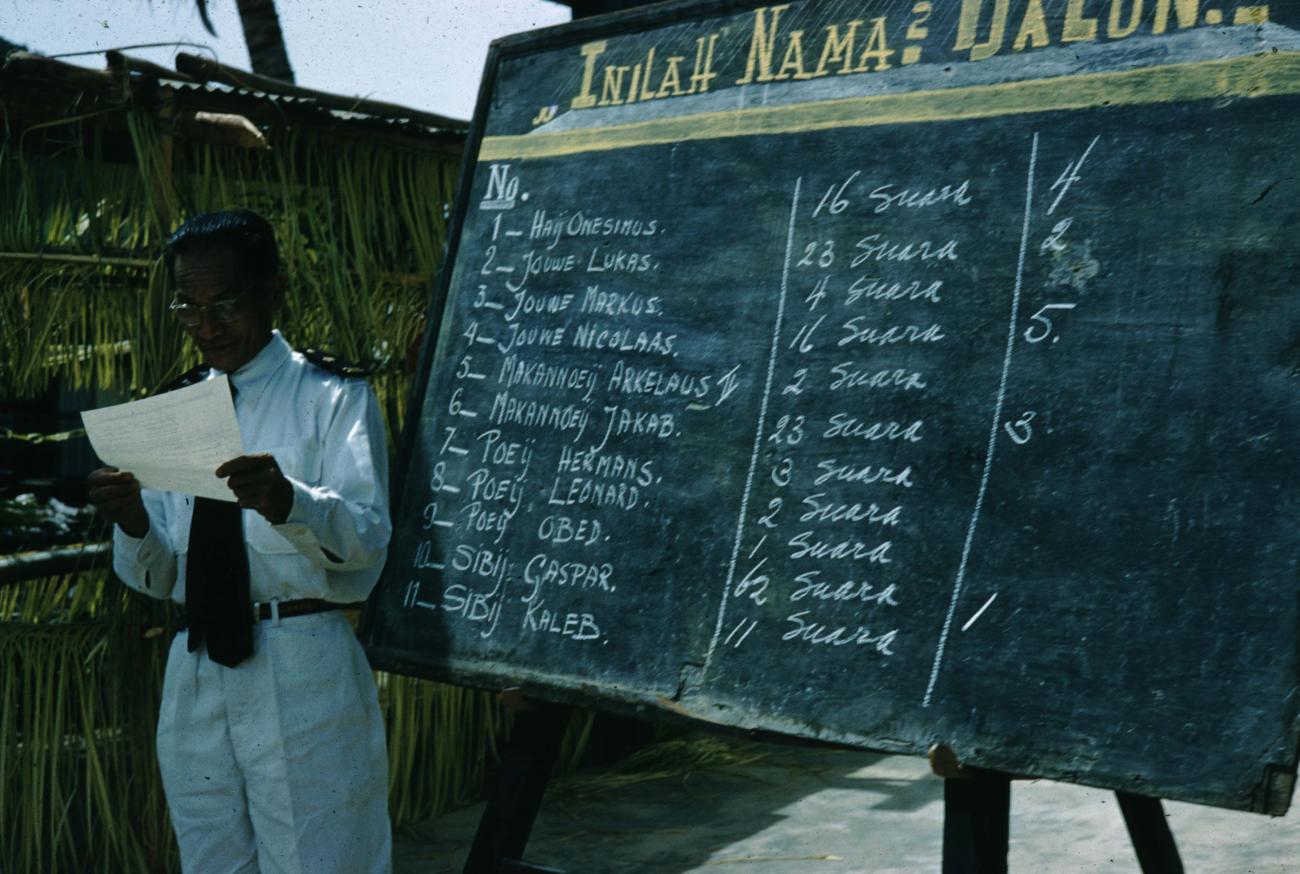 „ INILAH NAMA:2 TJALON.
No.
1_ HAIJ ONESIMUS. 16 Suara 4
2_ JOUWE LUKAS. 23 Suara 2
3_ JOUWE MARKUS. 4 Suara
4_ JOUWE NICOLAAS. 16 Suara 5.
5_ MAKANNOEIJ ARKELAUS II 2 Suara
6_ MAKANNOEIJ JAKAB. 23 Suara 3
7_ POEIJ HERMANS. 3 Suara
8_ POEIJ LEONARD. 2 Suara
9_ POEIJ OBED. 1 Suara
10_ SIBIJ GASPAR. 62 Suara 1
11_ SIBIJ KALEB. 11 Suara